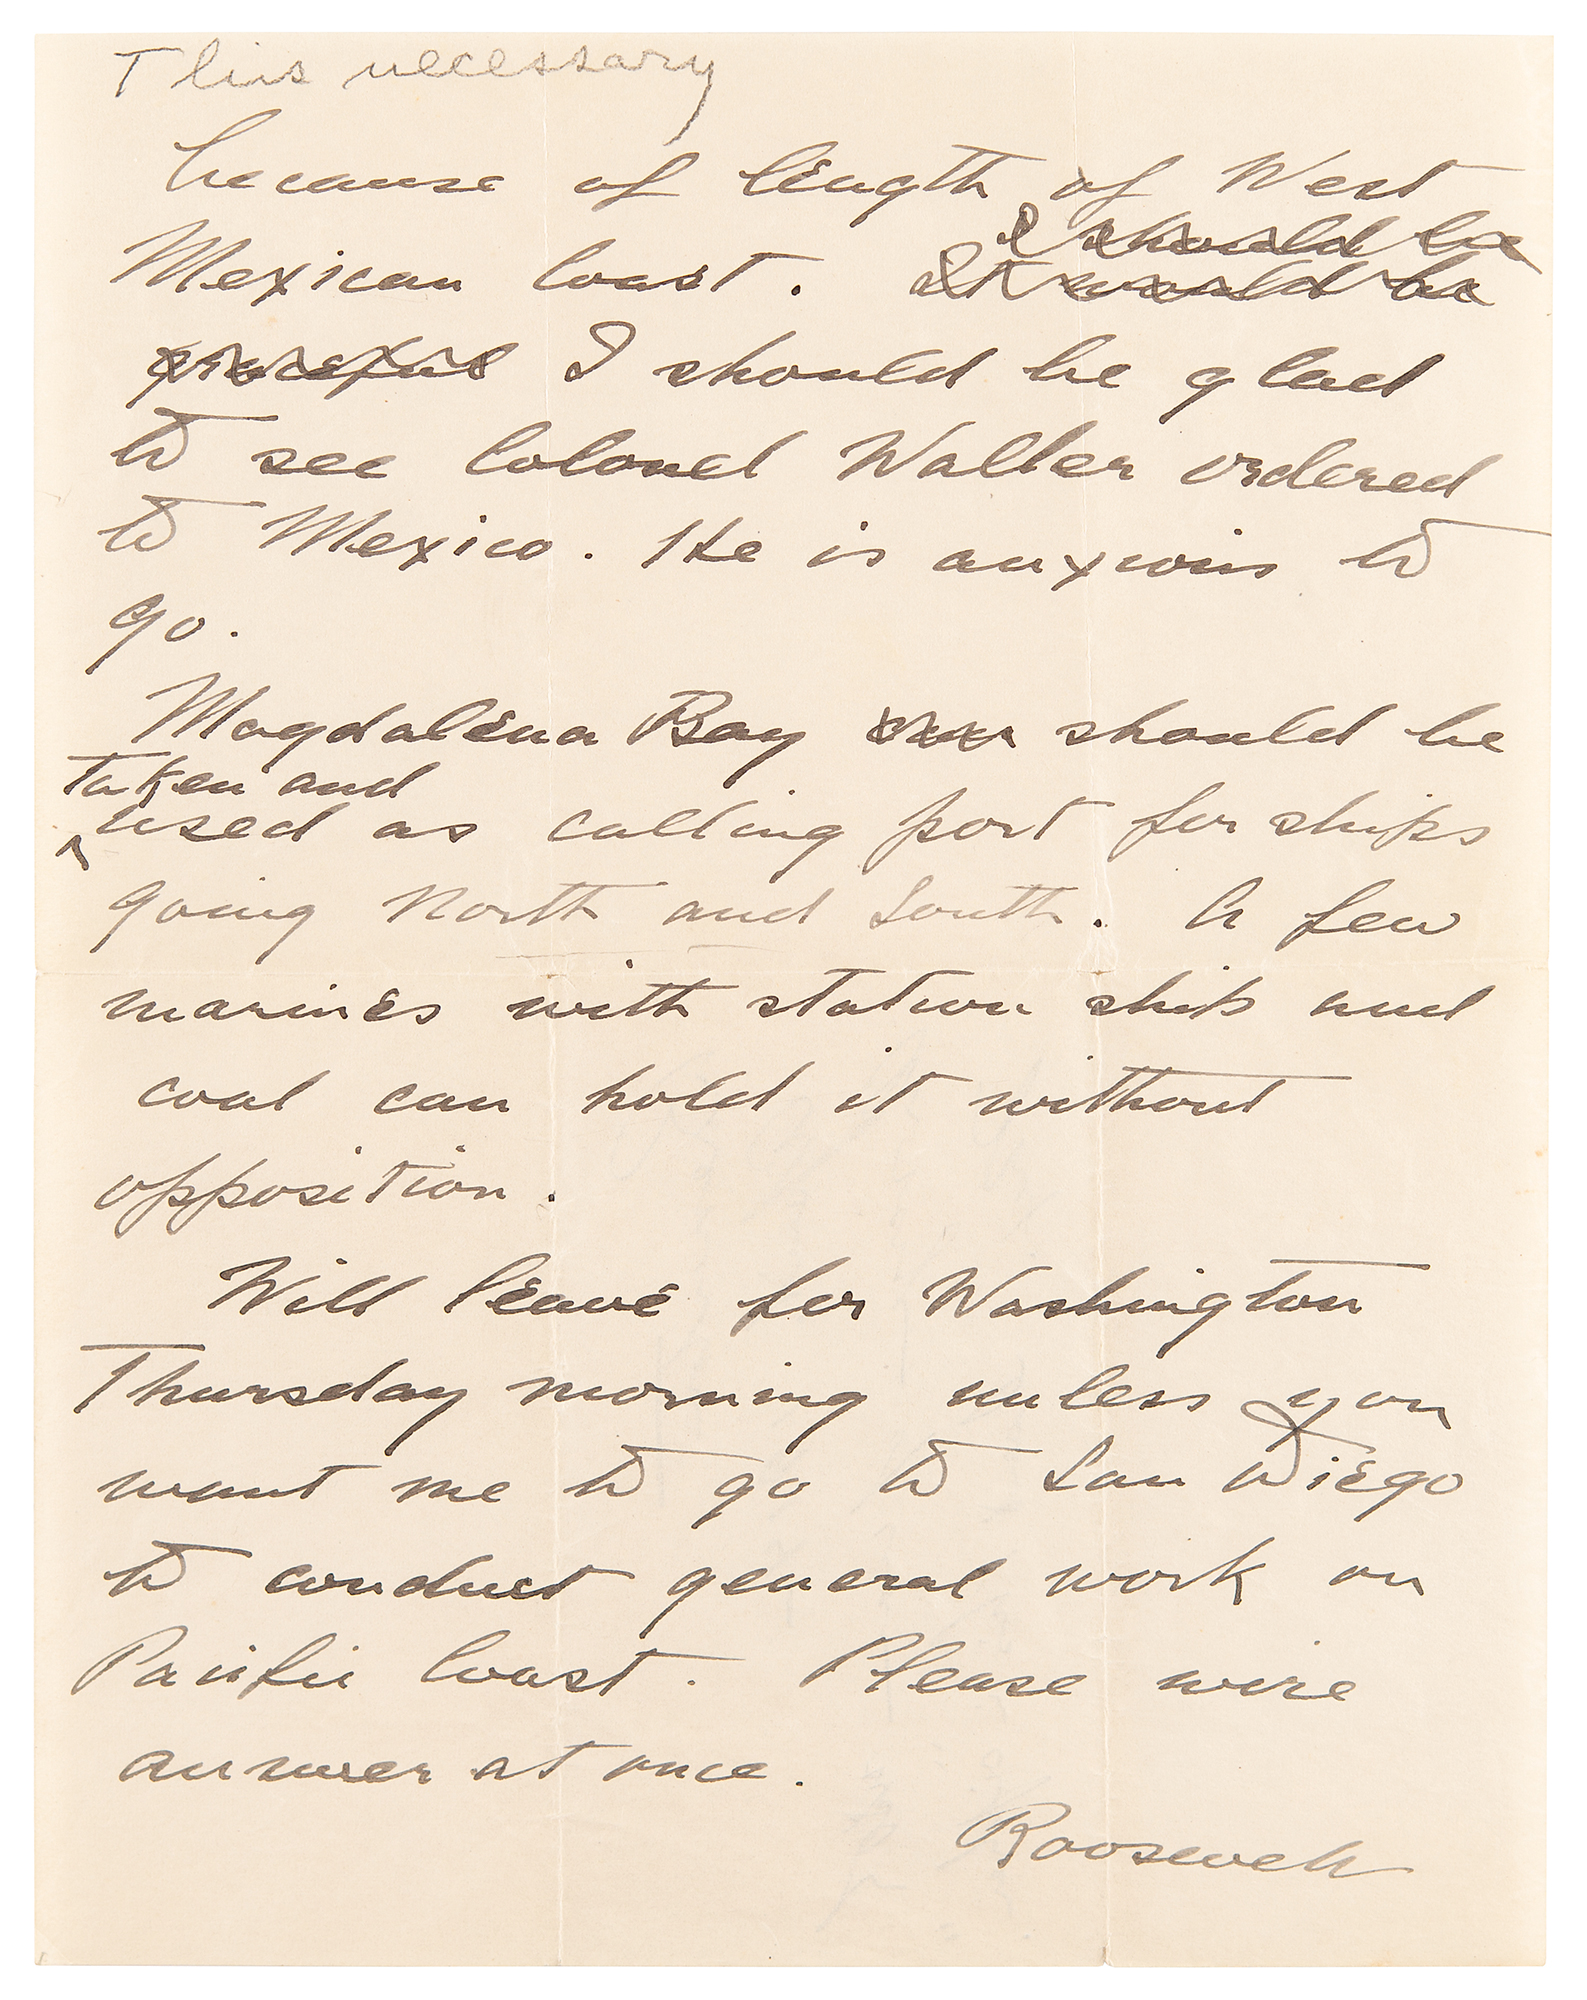 This necessary
because of length of West
I should be
Mexican Coast. It would be
I should be glad
to see Colonel Waller ordered
to Mexico. He is anxious to
go.
Magdalena Bay should be
taken and
used as calling port for ships
going North and South. A few
marines with station ship and
coal can hold it without
opposition.
Will leave for Washington
Thursday morning unless you
want me to go to San Diego
to conduct general work on
Pacific Coast. Please wire
answer at once.
Roosevelt